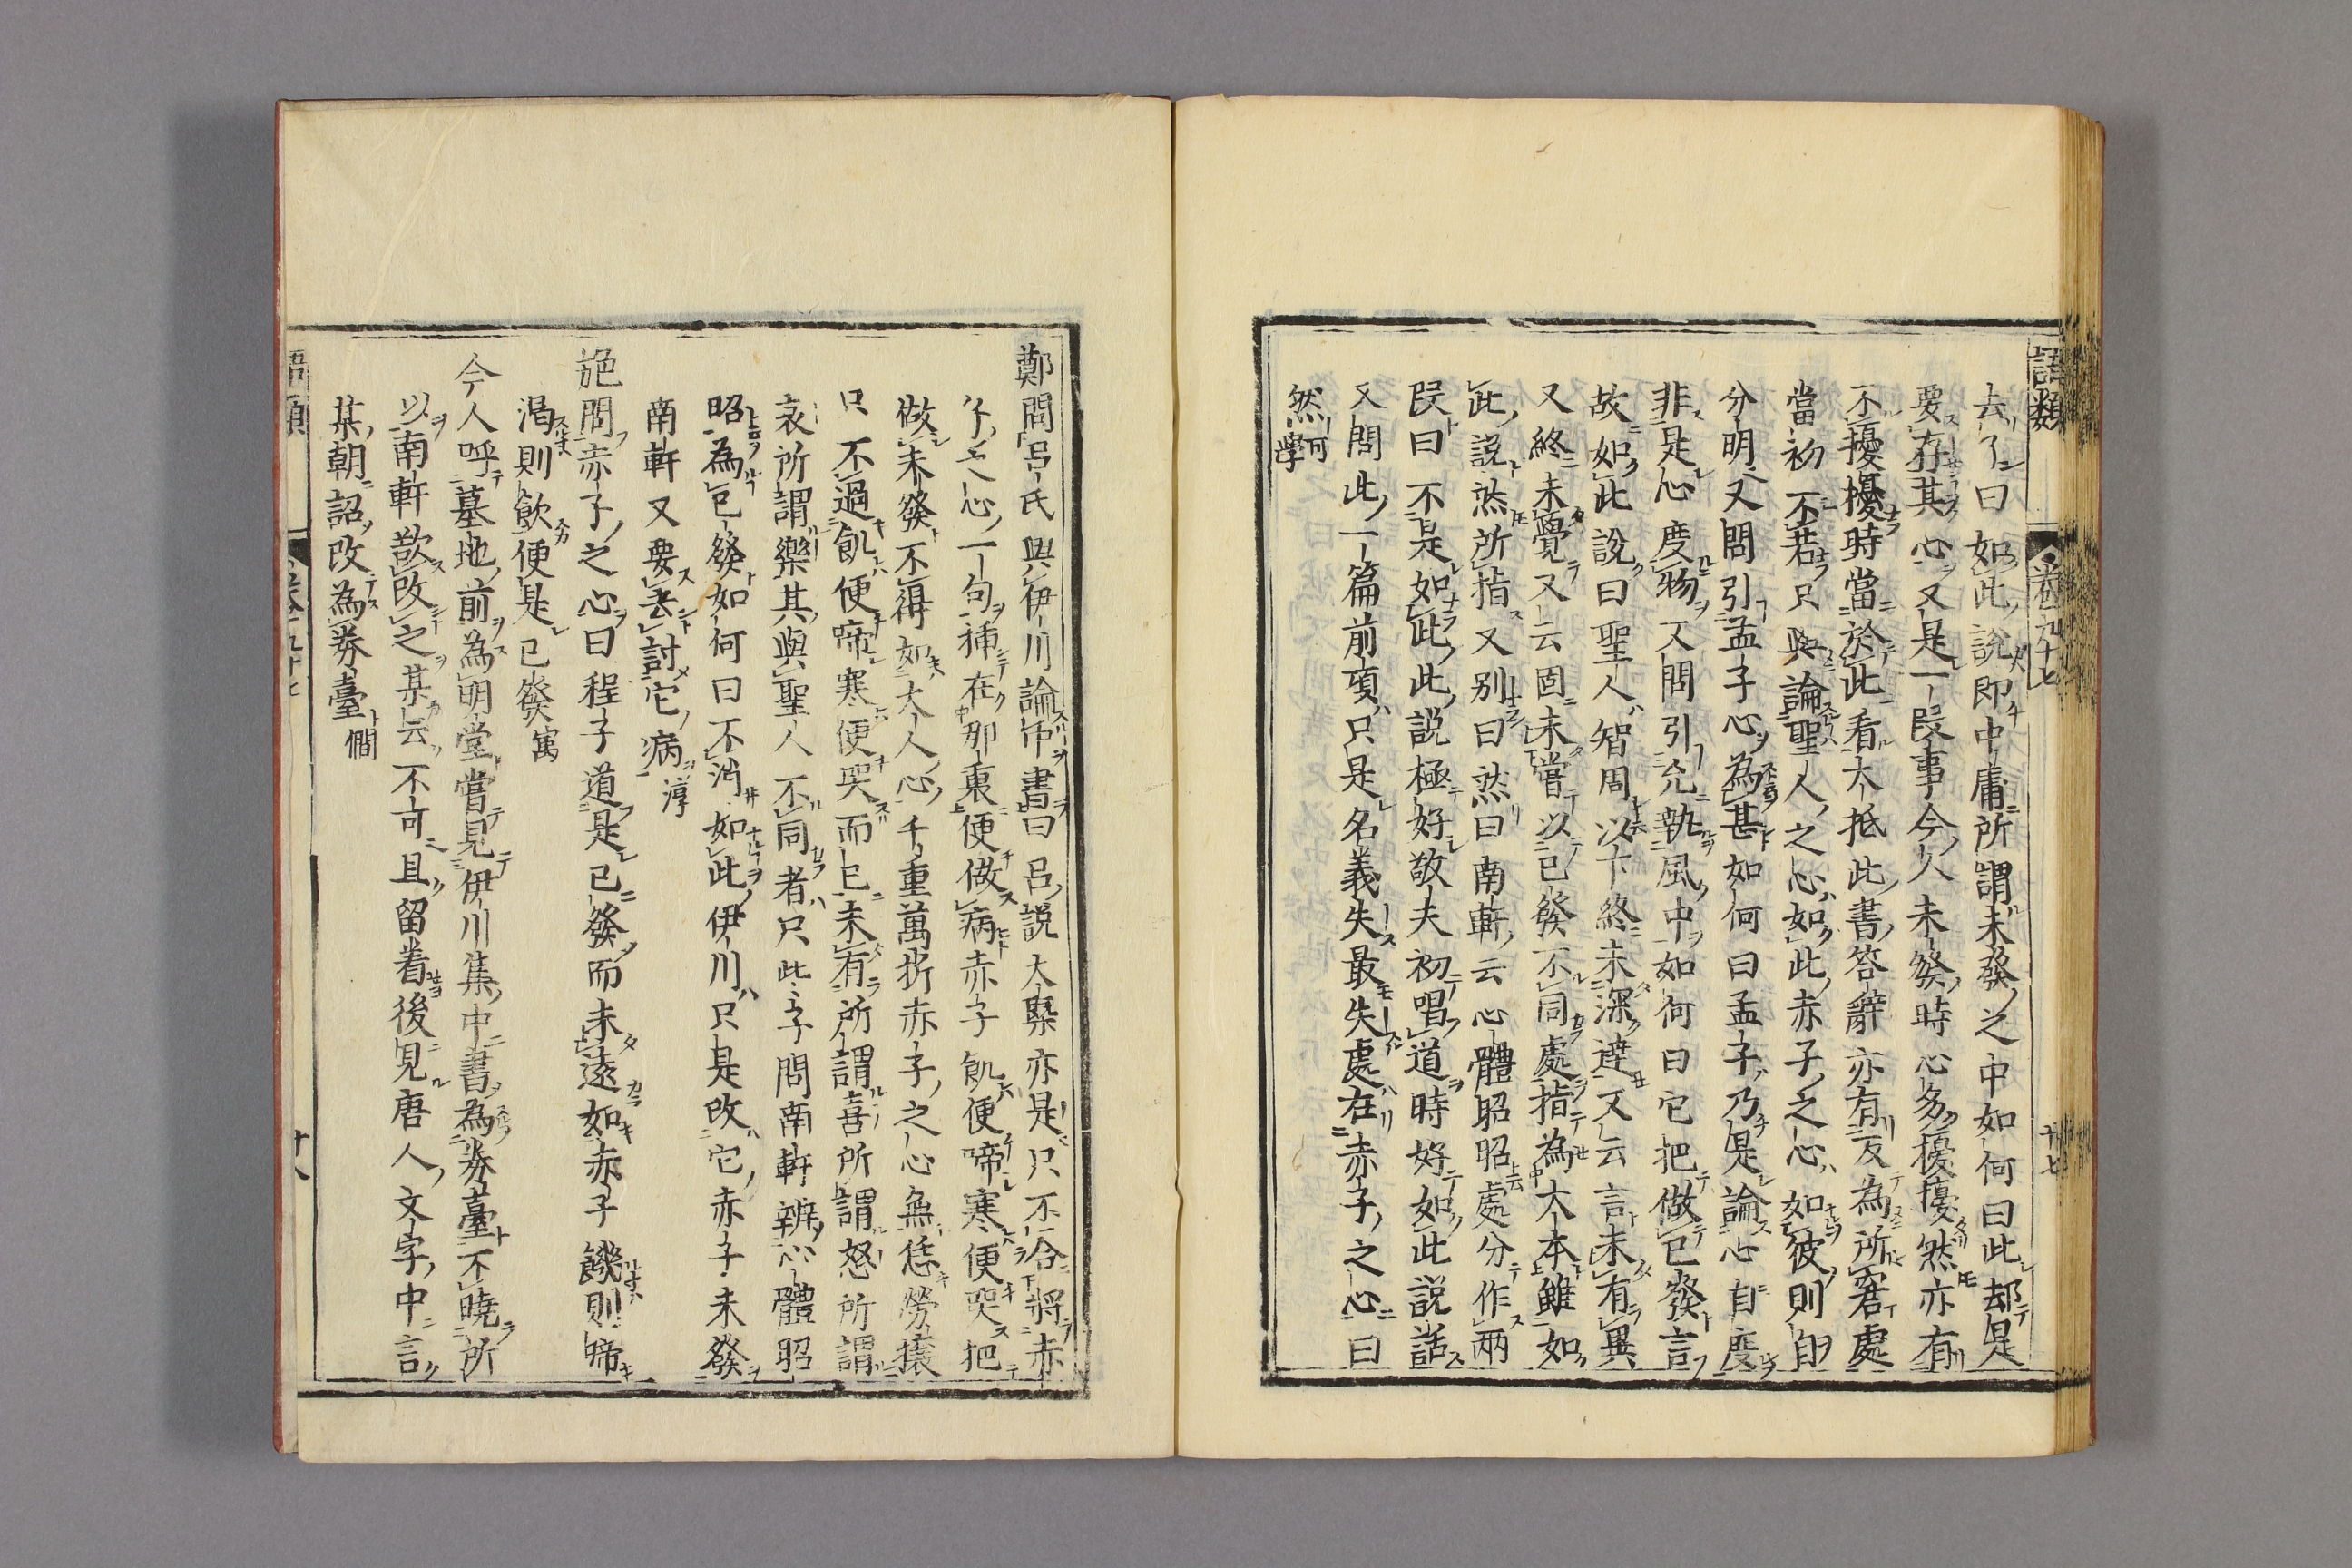 語類 卷九十七 十七
去了曰如此說即中庸所謂未發之中如何曰此却是
要存其心又是一段事今人未發時心多擾擾然亦有
不擾擾時當於此看大抵此書答辭亦有反為所窘處
當初不若只與論聖人之心如此赤子之心如彼則自
分明又問引孟子心為甚如何曰孟子乃是論心自度
非是心度物又問引允執厥中如何曰它把做已發言
故如此說曰聖人智周以下終未深達又云言未有異
又終未覺又云固未嘗以已發不同處指為大本雖如
此說然所指又別曰然曰南軒云心體昭昭處分作兩
段曰不是如此此說極好敬夫初唱道時好如此說話
又問此一篇前項只是名義失最失處在赤子之心曰
然 可學
鄭問呂氏與伊川論中書曰呂說大槩亦是只不合將赤
子之心一句插在那裏便做病赤子飢便啼寒便哭把
做未發不得如大人心千重萬折赤子之心無恁勞攘
只不過飢便啼寒便哭而已未有所謂喜所謂怒所謂
哀所謂樂其與聖人不同者只此子問南軒辨心體昭
昭為已發如何曰不消如此伊川只是改它赤子未發
南軒又要去討它病 淳
施問赤子之心曰程子道是已發而未遠如赤子饑則啼
渴則飲便是已發 㝢
今人呼墓地前為明堂嘗見伊川集中書為券臺不曉所
以南軒欲改之某云不可且留着後見唐人文字中言
某朝詔改為券臺 僩
語類 卷之九十七 十八